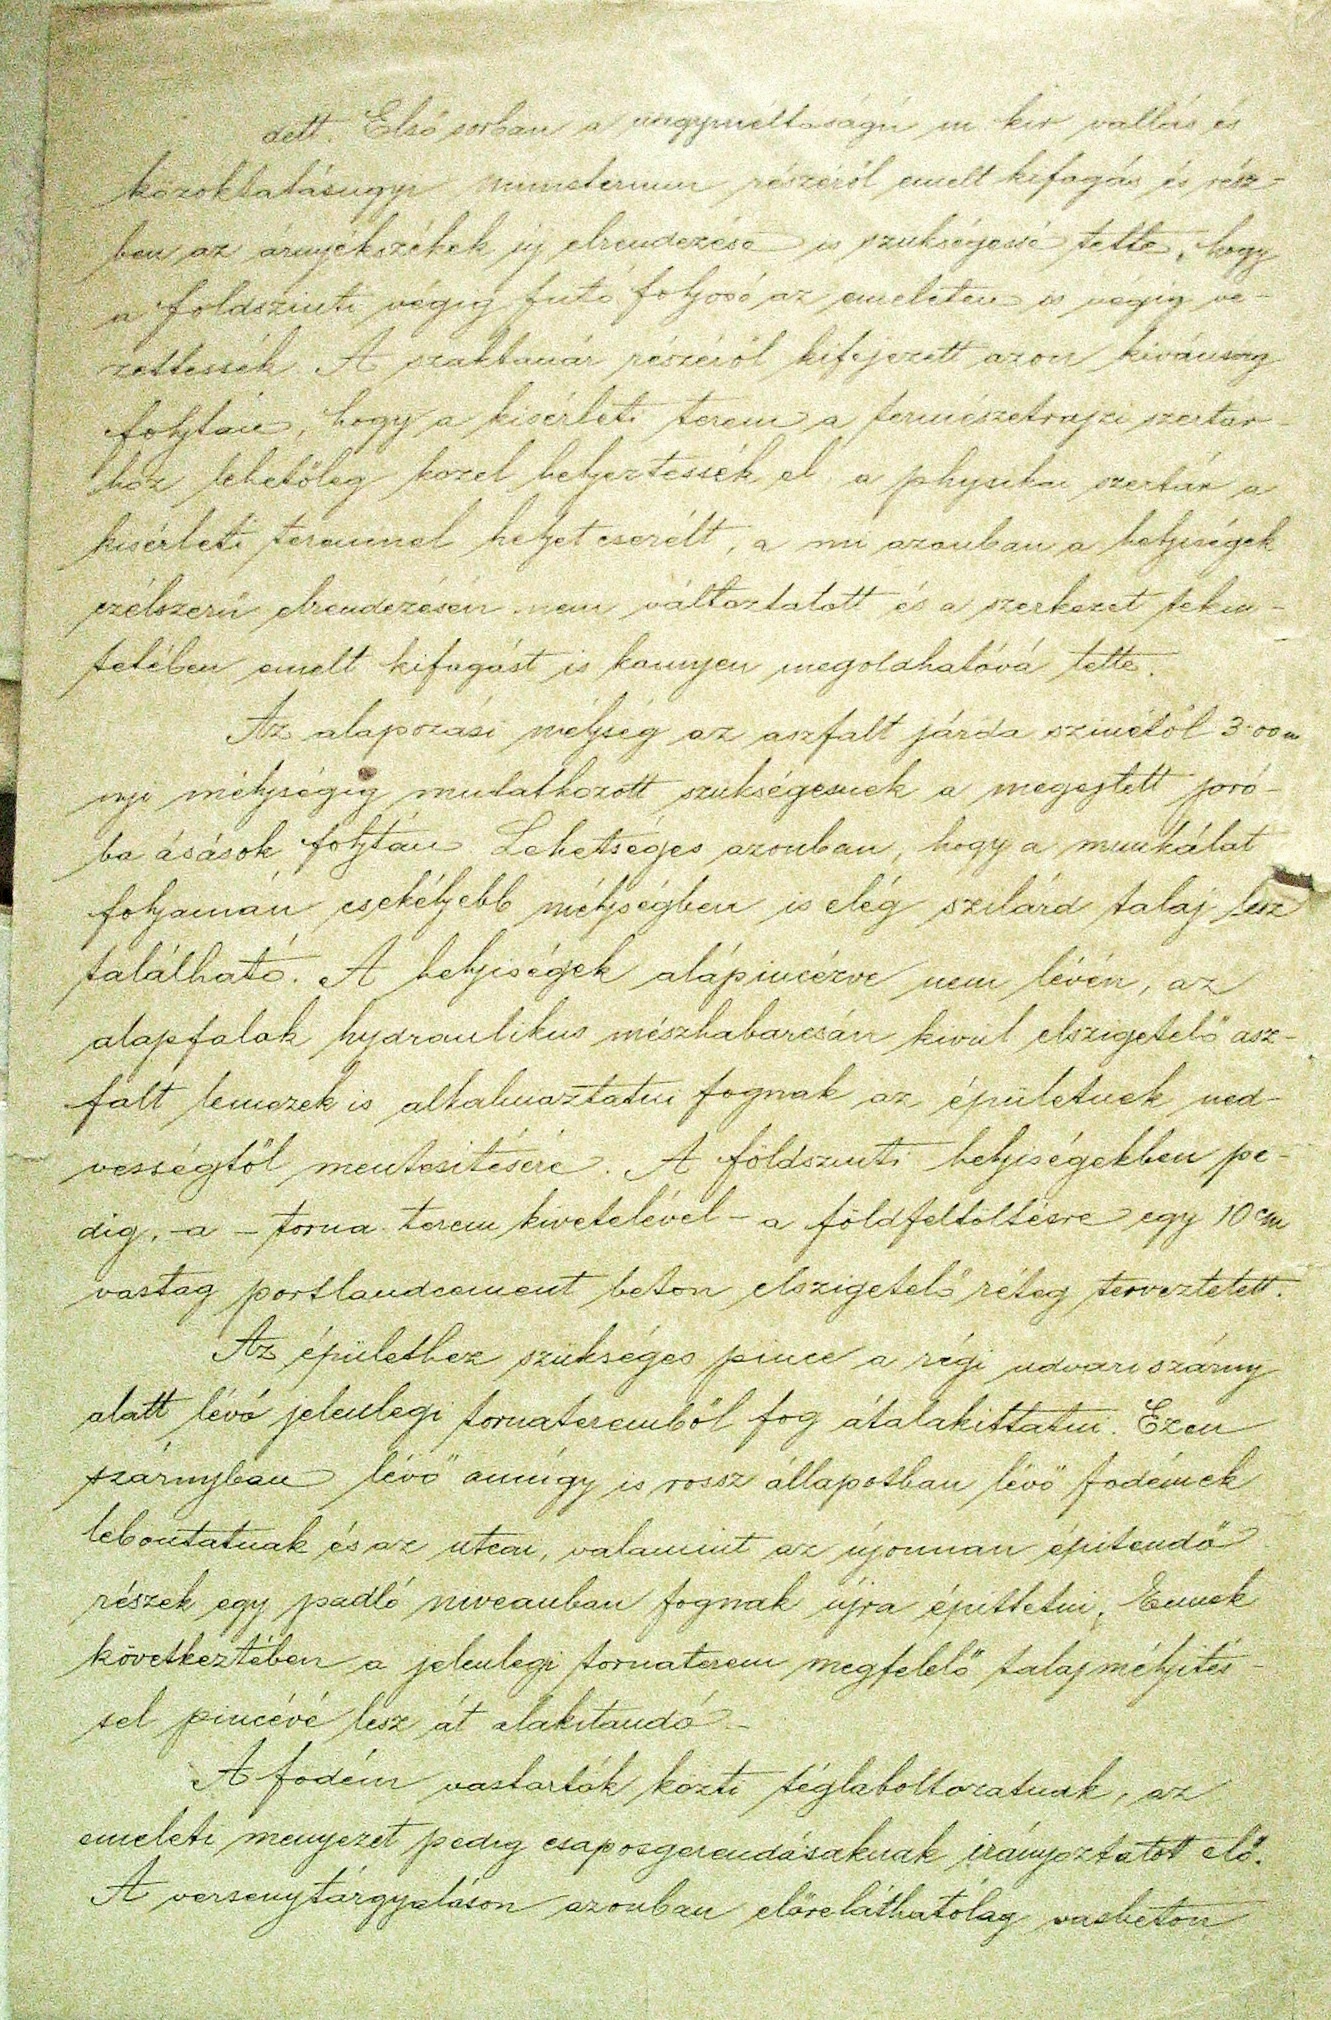 dett. Első sorban a nagyméltóságú m. kir vallás és
közoktatásügyi ministerium részéről emelt kifogás és rész-
ben az árnyékszékek új elrendezése is szükségessé tette, hogy
a földszinti végig futó folyosó az emeleten is végig ve-
zettessék. A szaktanár részéről kifejezett azon kivánság
folytán, hogy a kisérleti terem a természetrajzi szertár-
hoz lehetőleg közel helyeztessék el a physikai szertár a
kisérleti teremmel helyet cserélt, a mi azonban a helyiségek
czélszerű elrendezésén nem változtatott és a szerkezet tekin-
tetében emelt kifogást is könnyen megoldhatóvá tette.
Az alapozási mélység az aszfalt járda szinétől 3·00 m
nyi mélységig mutatkozott szükségesnek a megejtett pró-
ba ásások folytán. Lehetséges azonban, hogy a munkálat
folyamán csekélyebb mélységben is elég szilárd talaj lesz
található. A helyiségek alápinczézve nem lévén, az
alapfalak hydraulikus mészhabarcsán kivül elszigetelő asz-
falt lemezek is alkalmaztatni fognak az épületnek ned-
vességtől mentesitésére. A földszinti helyiségekben pe-
dig, - a - torna terem kivételével - a földfeltöltésre egy 10 cm
vastag portlandcement beton elszigetelő réteg terveztetett.
Az épülethez szükséges pince a régi udvari szárny
alatt lévő jelenlegi tornateremből fog átalakittatni. Ezen
szárnyban lévő amúgy is rossz állapotban lévő fodémek
lebontatnak és az utcai, valamint az újonnan épitendő
részek egy padló niveauban fognak újra épittetni. Ennek
következtében a jelenlegi tornaterem megfelelő talajmélyités-
sel pincévé lesz át alakitandó. -
A fodém vastartók közti téglaboltozatnak, az
emeleti menyezet pedig csaposgerendásaknak irányoztatott elő.
A versenytárgyaláson azonban előreláthatólag vasbeton